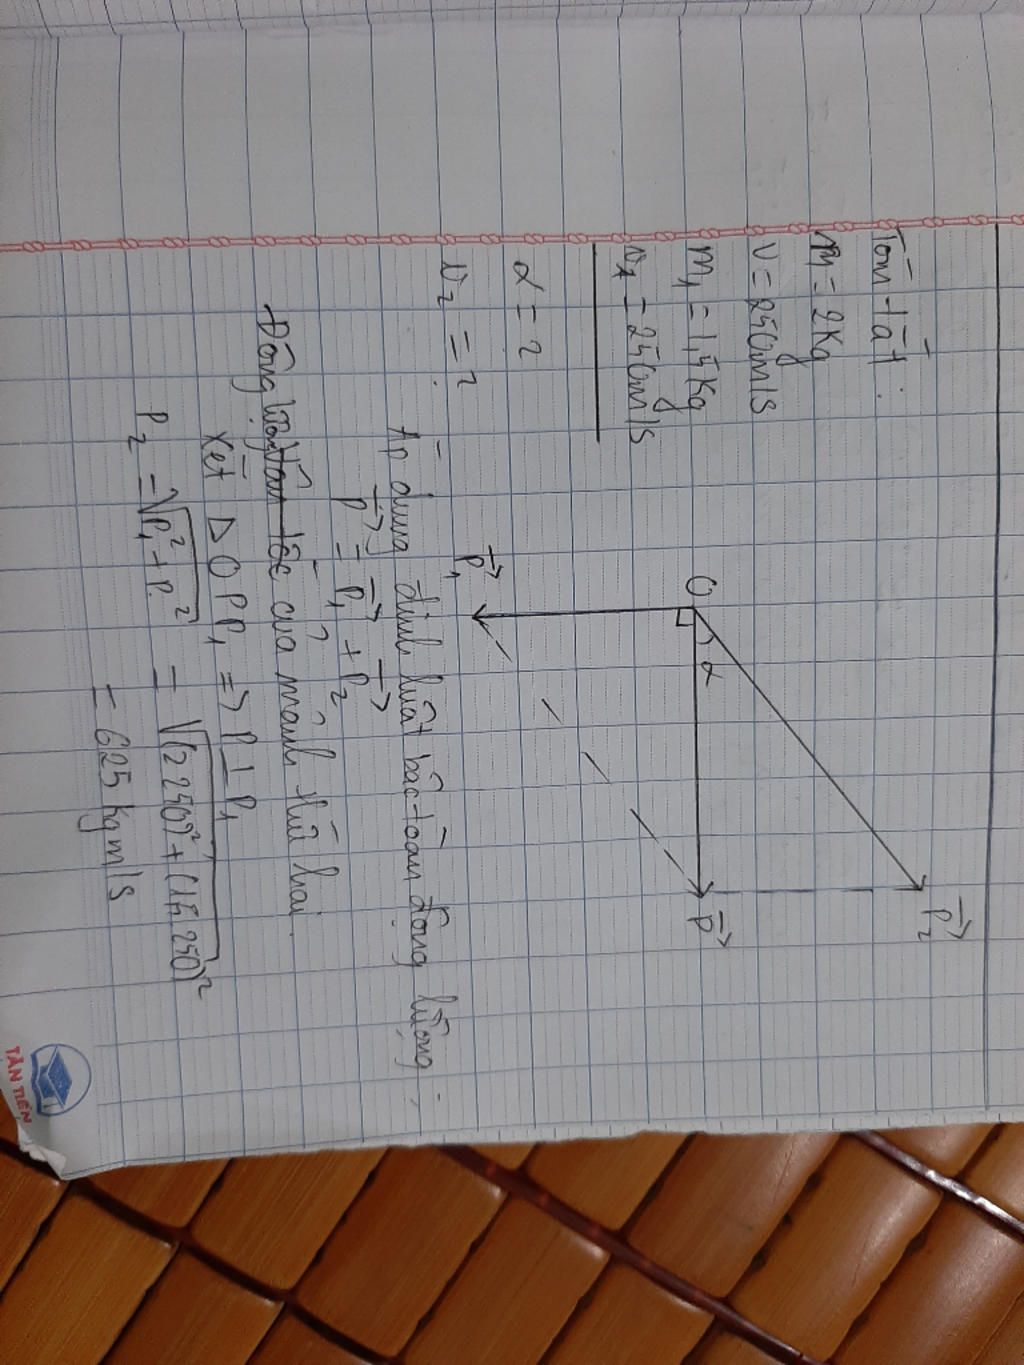 Tóm tắt:
m = 2kg
v = 250m/s
m₁ = 1,5kg
v₁ = 250m/s
α = ?
v₂ = ?
O
α
P₂→
P→
P₁→
Áp dụng định luật bảo toàn động lượng:
P→ = P₁→ + P₂→
Động lượng vận tốc của mảnh thứ hai
xét Δ O P P₁ => P ⊥ P₁
P₂ = √(P₁² + P²) = √((2.250)² + (1,5.250)²
= 625 kgm/s
TÂN TIẾN